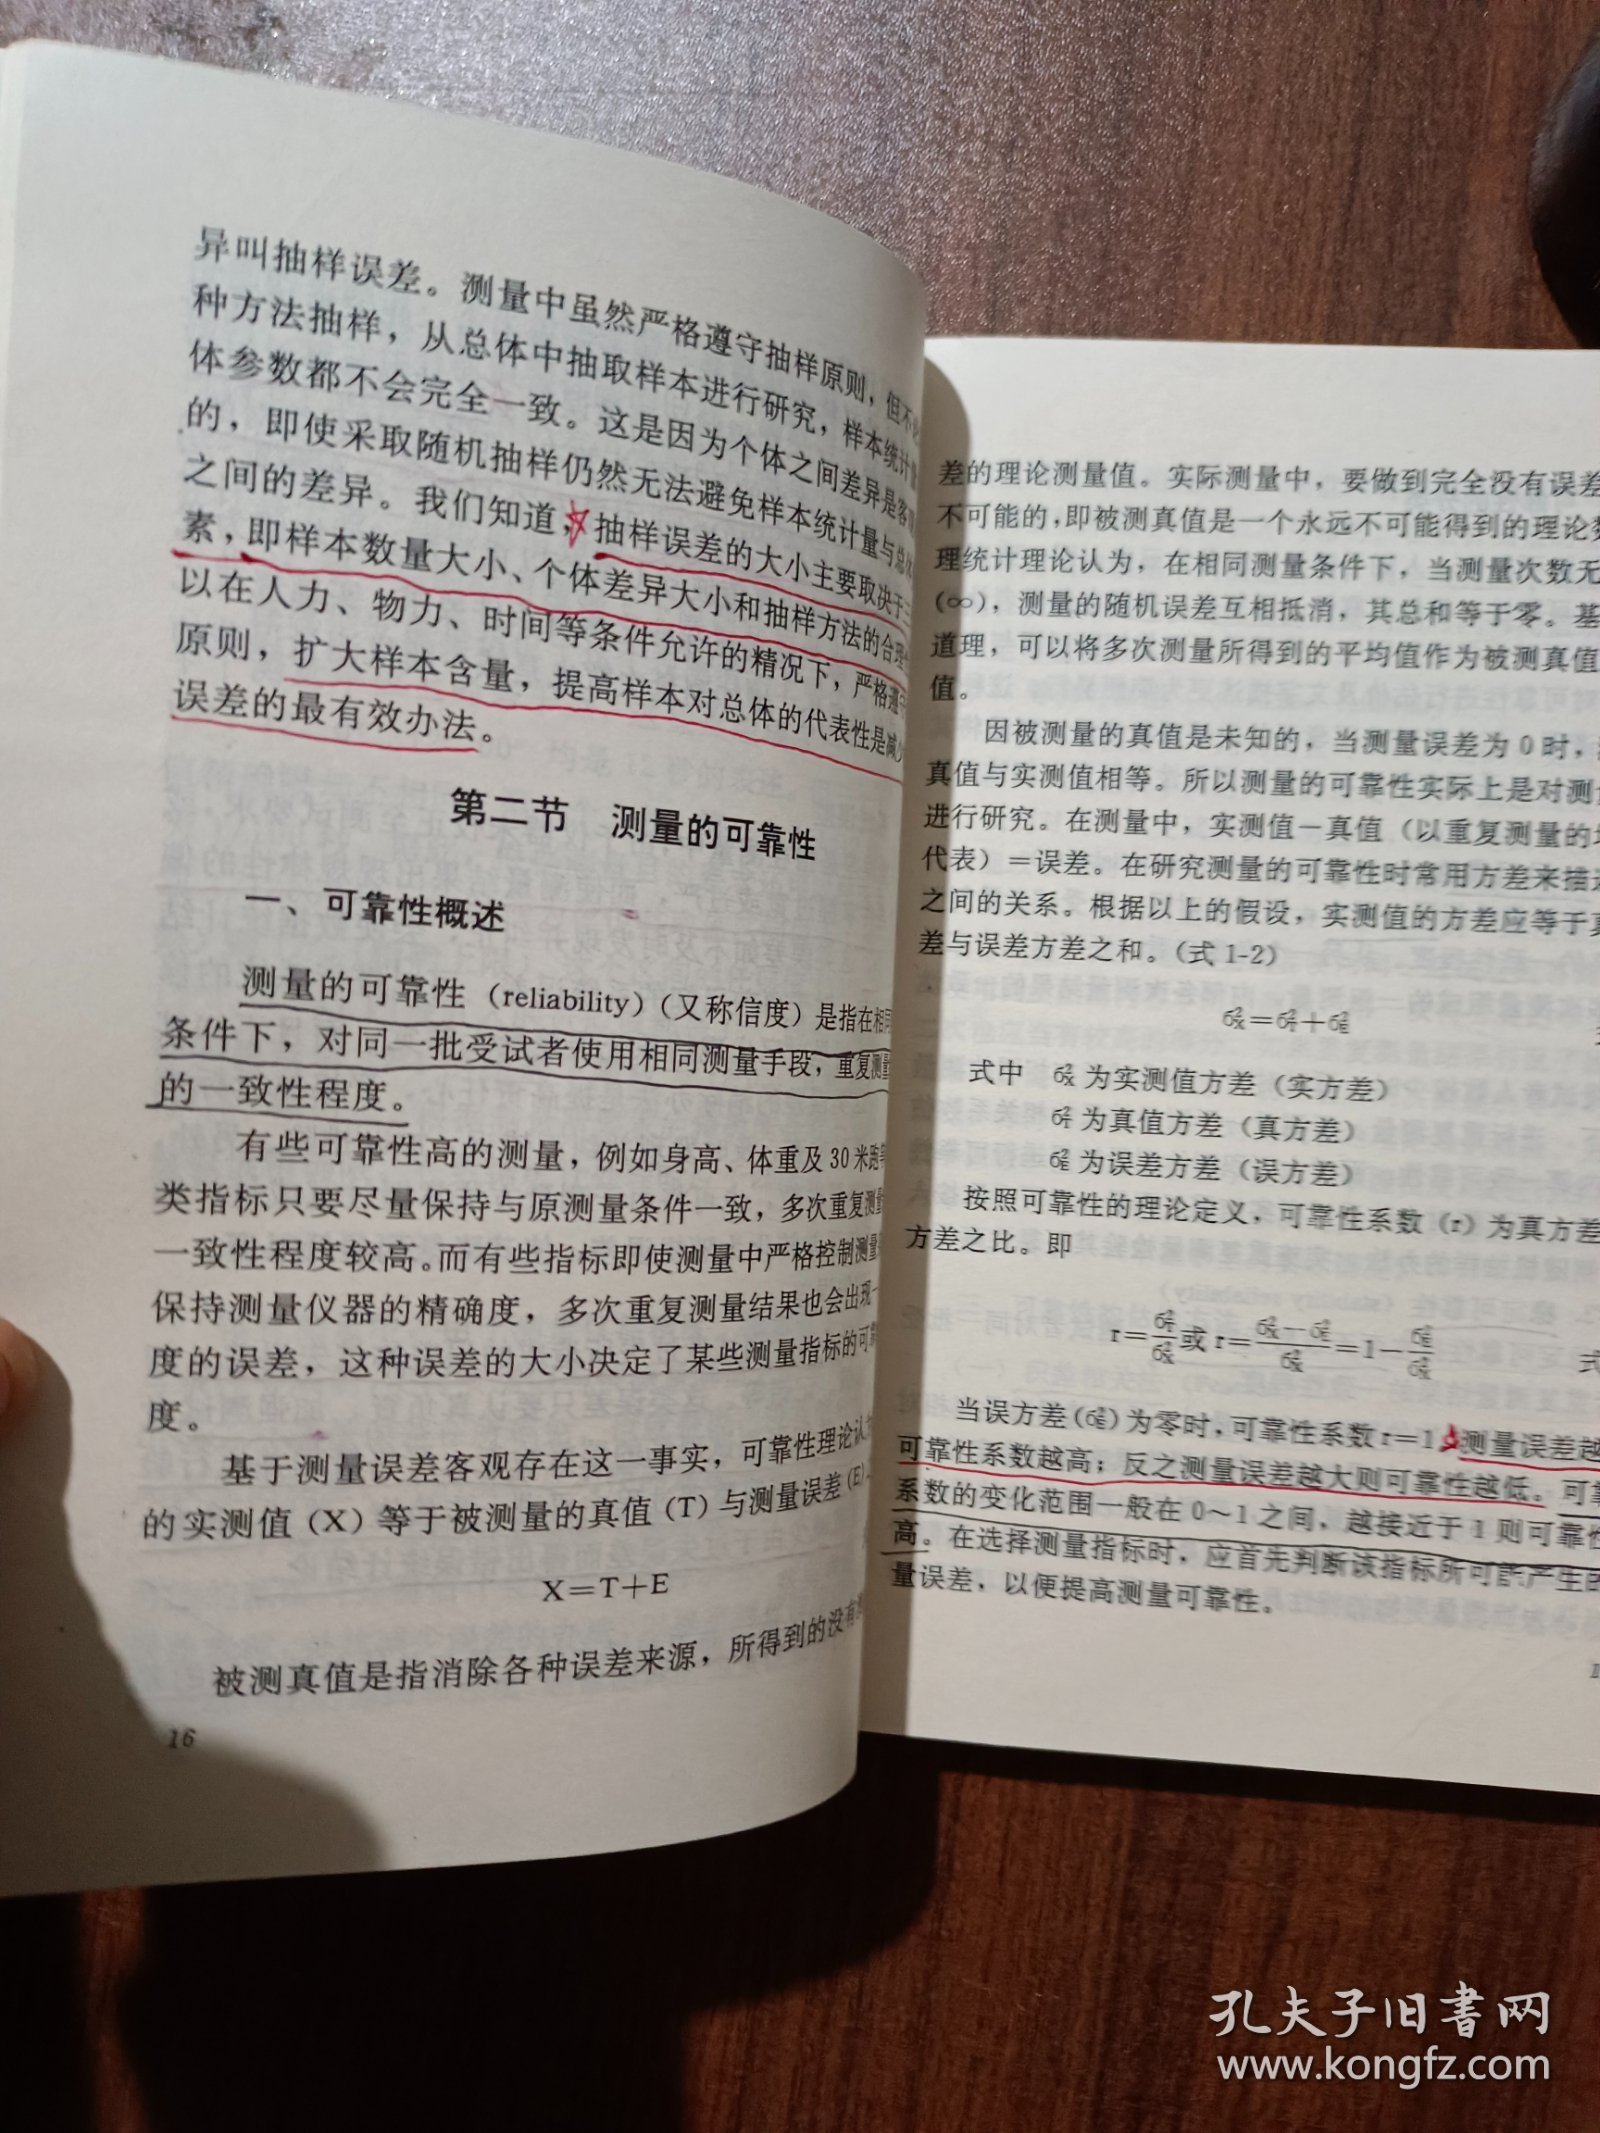 异叫抽样误差。测量中虽然严格遵守抽样原则，但不
种方法抽样，从总体中抽取样本进行研究，样本统计
体参数都不会完全一致。这是因为个体之间差异是客
的，即使采取随机抽样仍然无法避免样本统计量与总
之间的差异。我们知道，抽样误差的大小主要取决于
素，即样本数量大小、个体差异大小和抽样方法的合理
以在人力、物力、时间等条件允许的情况下，严格遵
原则，扩大样本含量，提高样本对总体的代表性是减
误差的最有效办法。
第二节 测量的可靠性
一、可靠性概述
测量的可靠性（reliability）（又称信度）是指在相同
条件下，对同一批受试者使用相同测量手段，重复测量
的一致性程度。
有些可靠性高的测量，例如身高、体重及30米跑
类指标只要尽量保持与原测量条件一致，多次重复测量
一致性程度较高。而有些指标即使测量中严格控制测量
保持测量仪器的精确度，多次重复测量结果也会出现一
度的误差，这种误差的大小决定了某些测量指标的可靠
度。
基于测量误差客观存在这一事实，可靠性理论认
的实测值（X）等于被测量的真值（T）与测量误差（E）
X=T+E
被测真值是指消除各种误差来源，所得到的没有
16
差的理论测量值。实际测量中，要做到完全没有误差
不可能的，即被测真值是一个永远不可能得到的理论
理统计理论认为，在相同测量条件下，当测量次数无
（∞），测量的随机误差互相抵消，其总和等于零。基
道理，可以将多次测量所得到的平均值作为被测真值
值。
因被测量的真值是未知的，当测量误差为0时，
真值与实测值相等。所以测量的可靠性实际上是对测
进行研究。在测量中，实测值－真值（以重复测量的
代表）＝误差。在研究测量的可靠性时常用方差来描
之间的关系。根据以上的假设，实测值的方差应等于真
差与误差方差之和。（式1-2）
σ²X=σ²T+σ²E
式中 σ²X为实测值方差（实方差）
σ²T为真值方差（真方差）
σ²E为误差方差（误方差）
按照可靠性的理论定义，可靠性系数（r）为真方差
方差之比。即
r=σ²T/σ²X或r=(σ²X−σ²E)/σ²X=1−σ²E/σ²X 式
当误方差（σ²E）为零时，可靠性系数r=1，测量误差越
可靠性系数越高；反之测量误差越大则可靠性越低。可靠
系数的变化范围一般在0～1之间，越接近于1则可靠性
高。在选择测量指标时，应首先判断该指标所可能产生的
量误差，以便提高测量可靠性。
孔夫子旧书网
www.kongfz.com